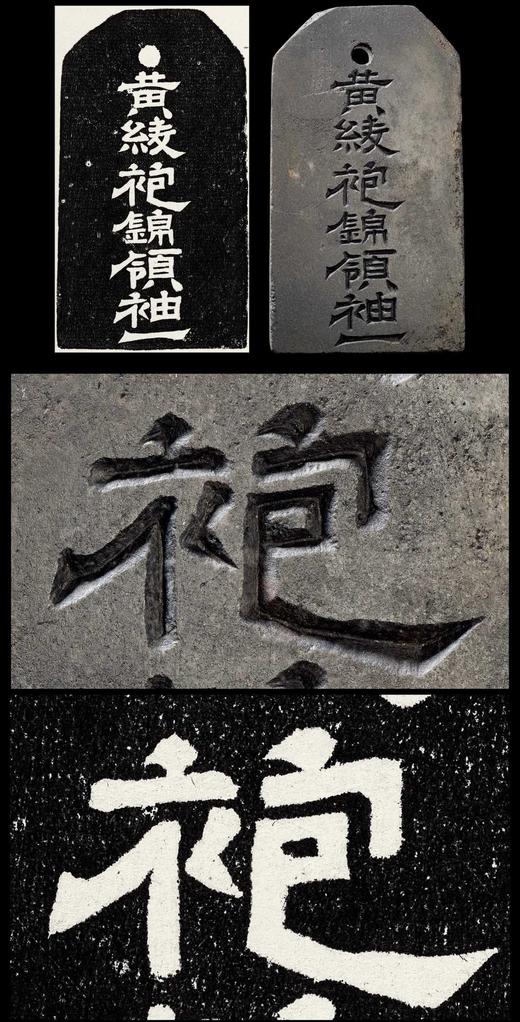 黃綾袍錦領袖一
黃綾袍錦領袖一
袍
袍